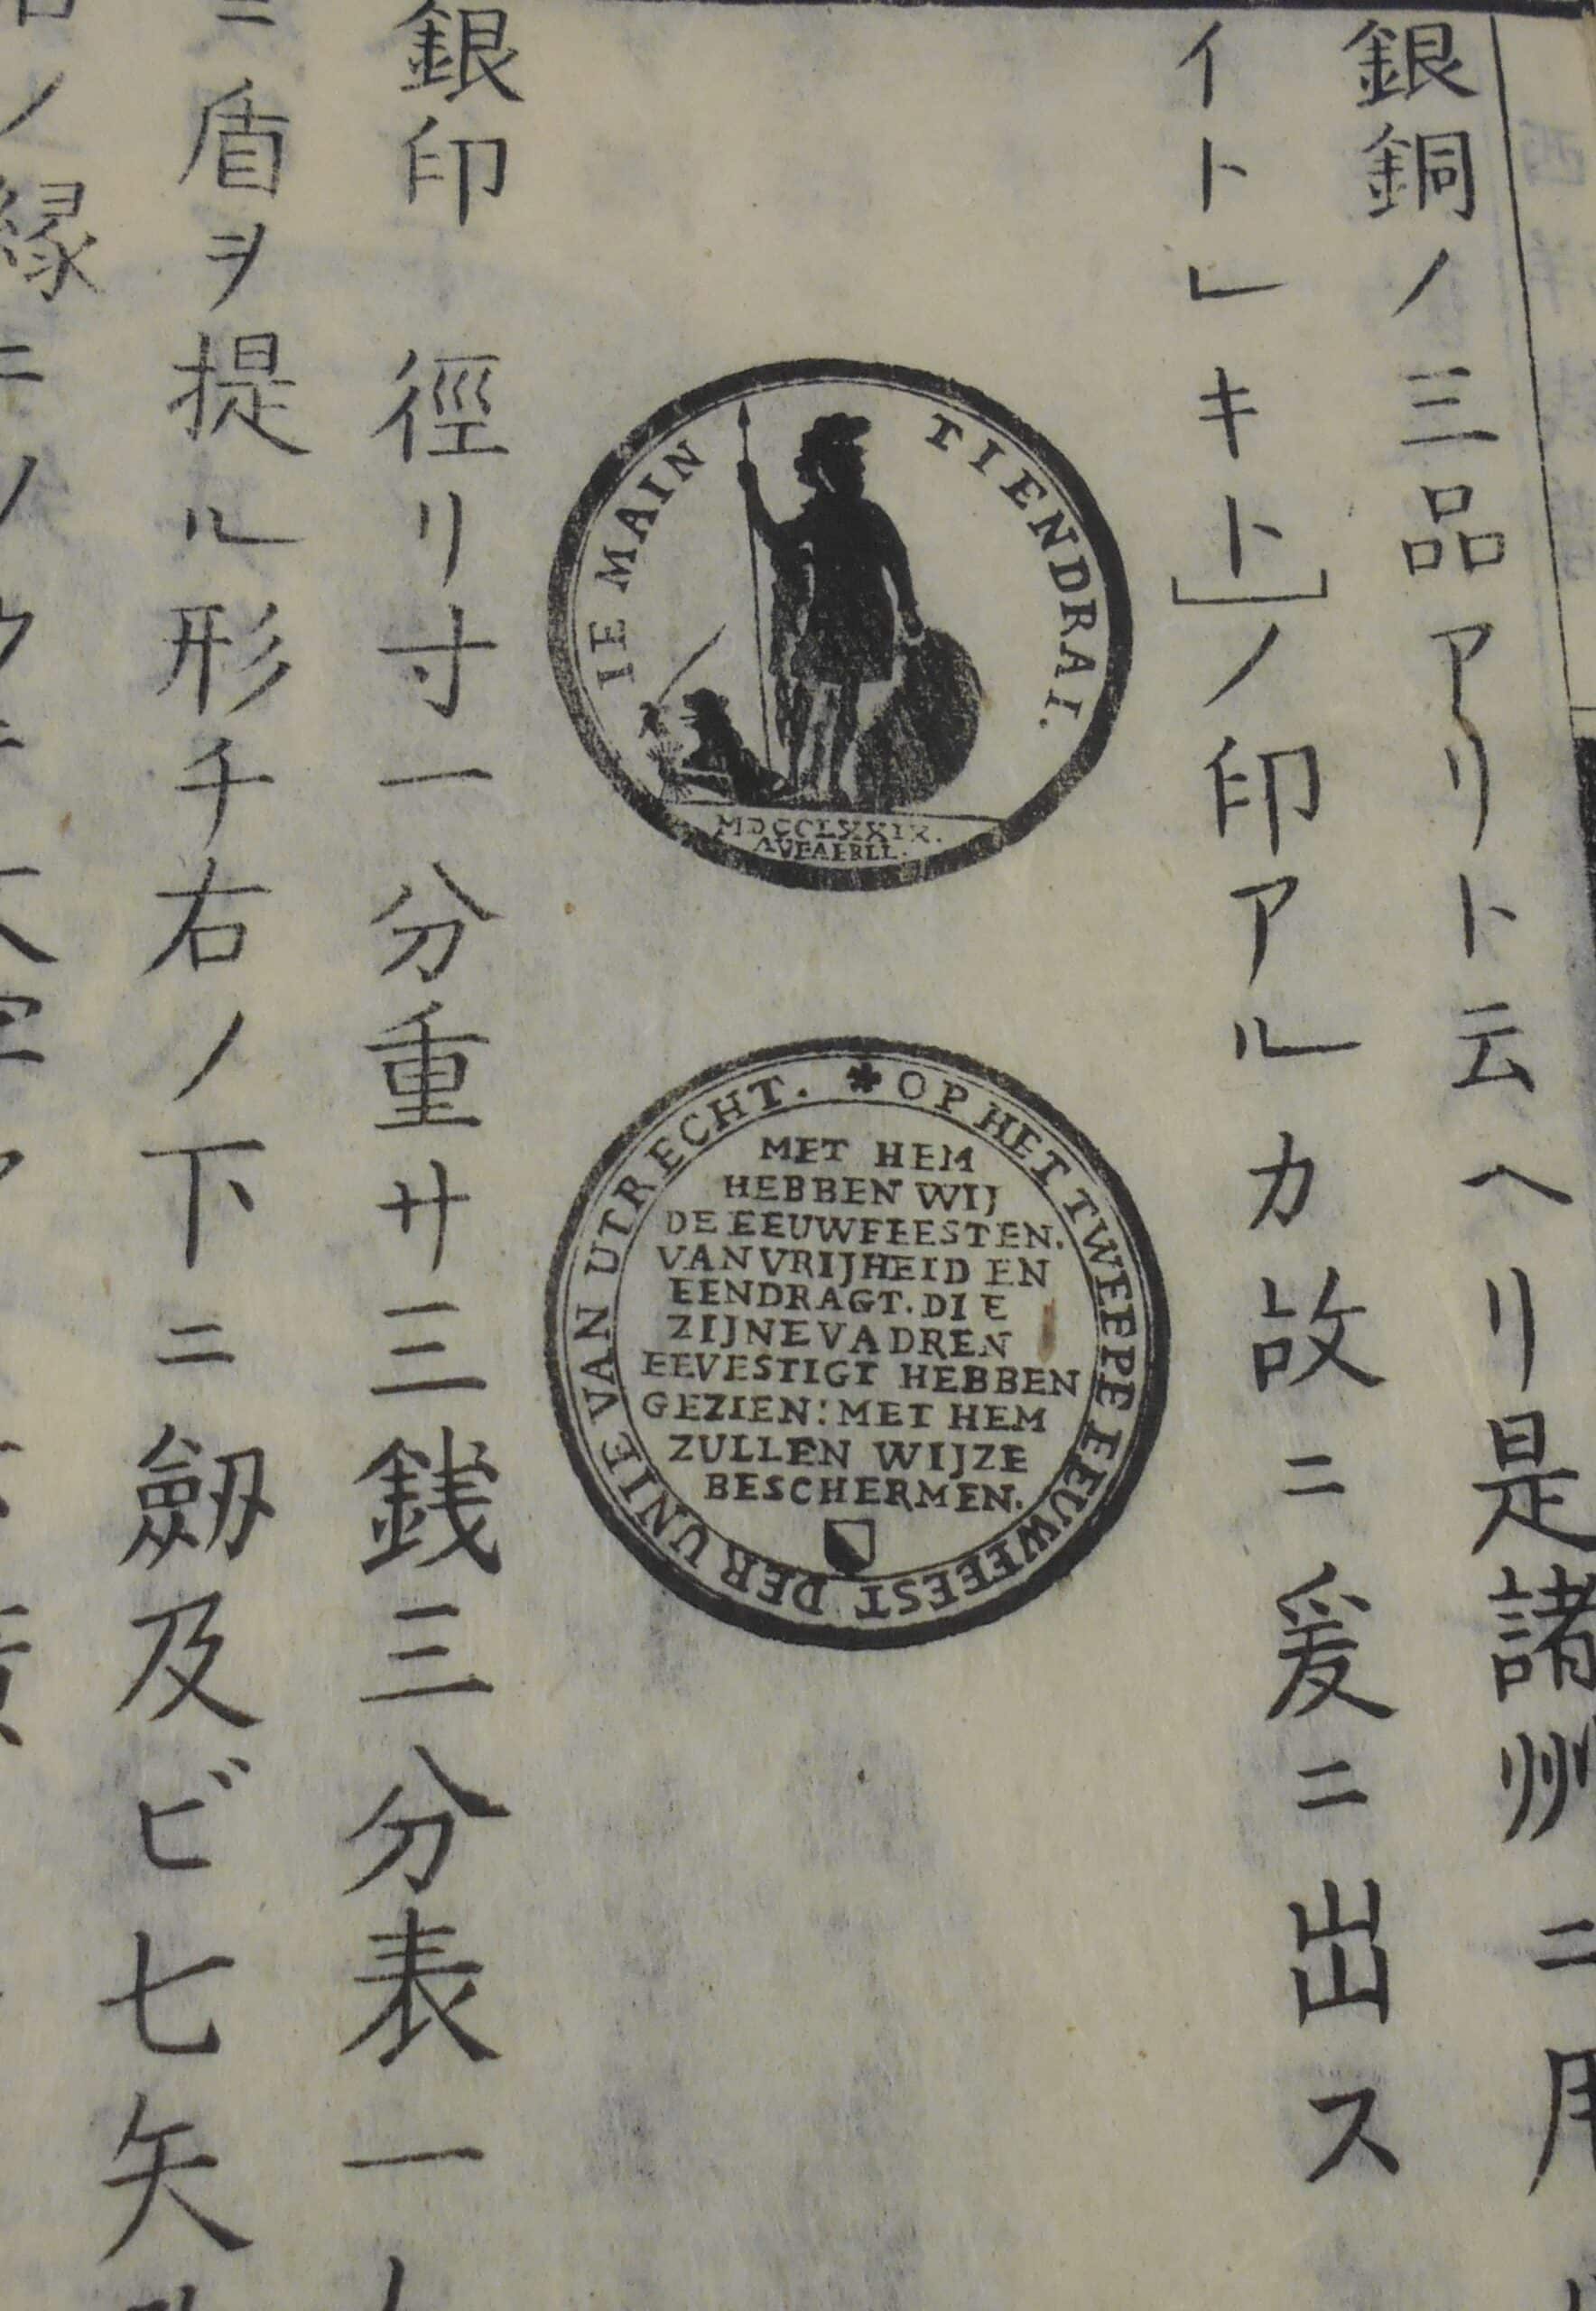 銀銅ノ三品アリト云ヘリ是諸州ニ用
イト」キト」ノ印アルカ故ニ爰ニ出ス
IE MAIN TIENDRAI.
MDCCLXXIX.
✱ OP HET TWEEPE EEUWFEEST DER UNIE VAN UTRECHT.
MET HEM
HEBBEN WIJ
DE EEUWFEESTEN.
VAN VRIJHEID EN
EENDRAGT. DIE
ZIJNE VADREN
EEVESTIGT HEBBEN
GEZIEN: MET HEM
ZULLEN WIJ ZE
BESCHERMEN.
銀印 徑リ寸一分重サ三銭三分表一人
ニ盾ヲ提ル形チ右ノ下ニ劔及ビ七矢